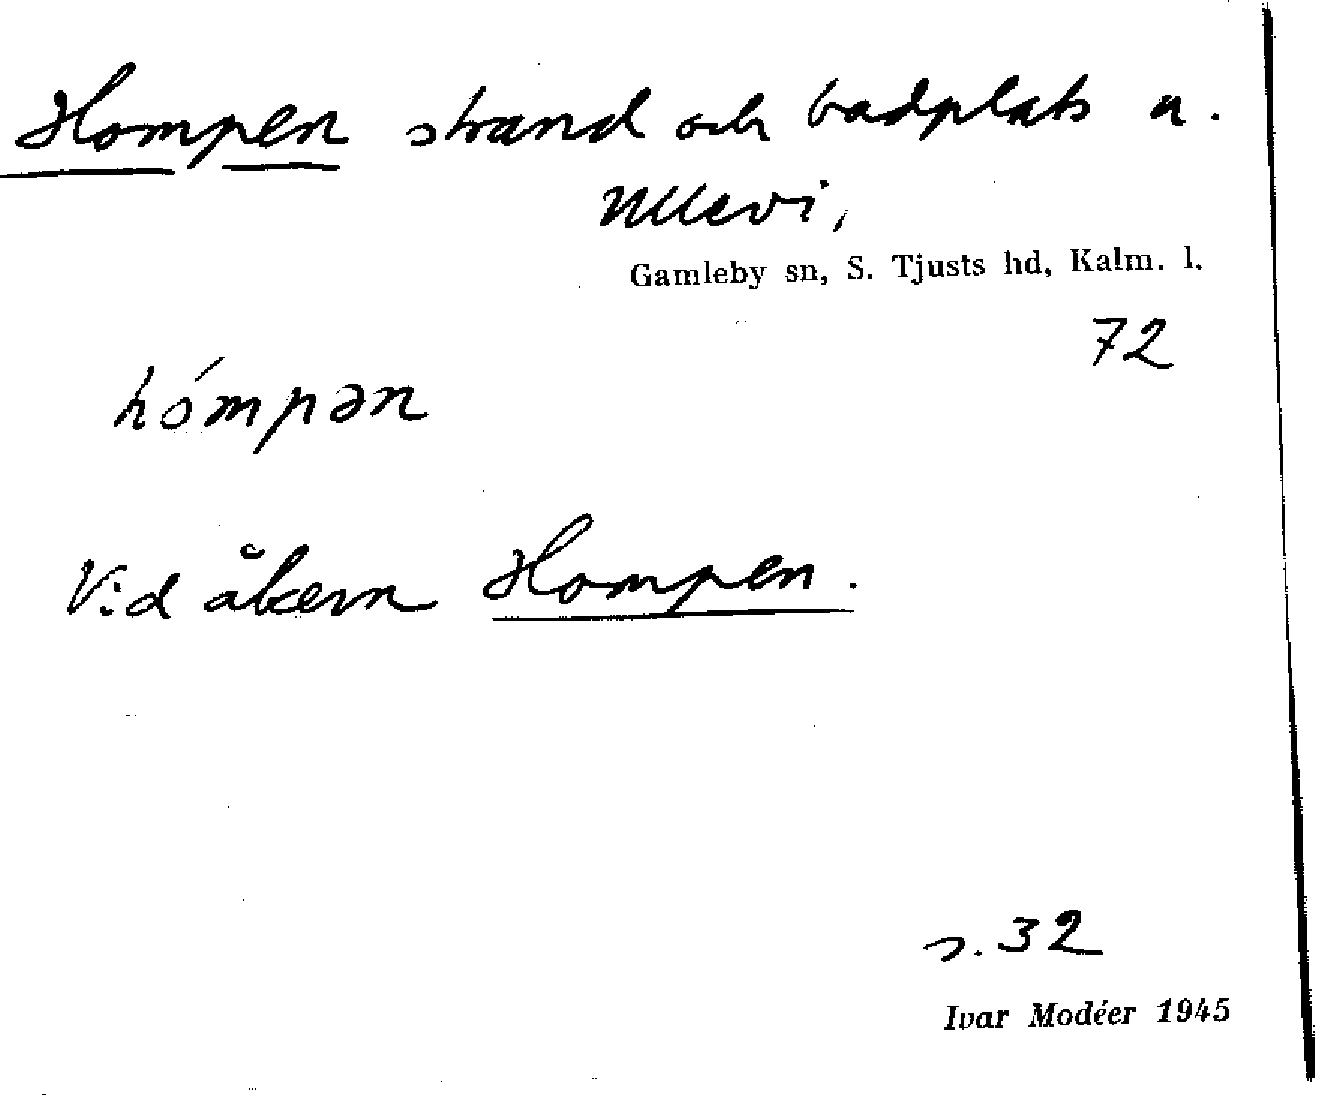 Hompen strand och badplats u.
Ullevi,
Gamleby sn, S. Tjusts hd, Kalm. l.
72
hómpən
Vid åkern Hompen.
s. 32
Ivar Modéer 1945